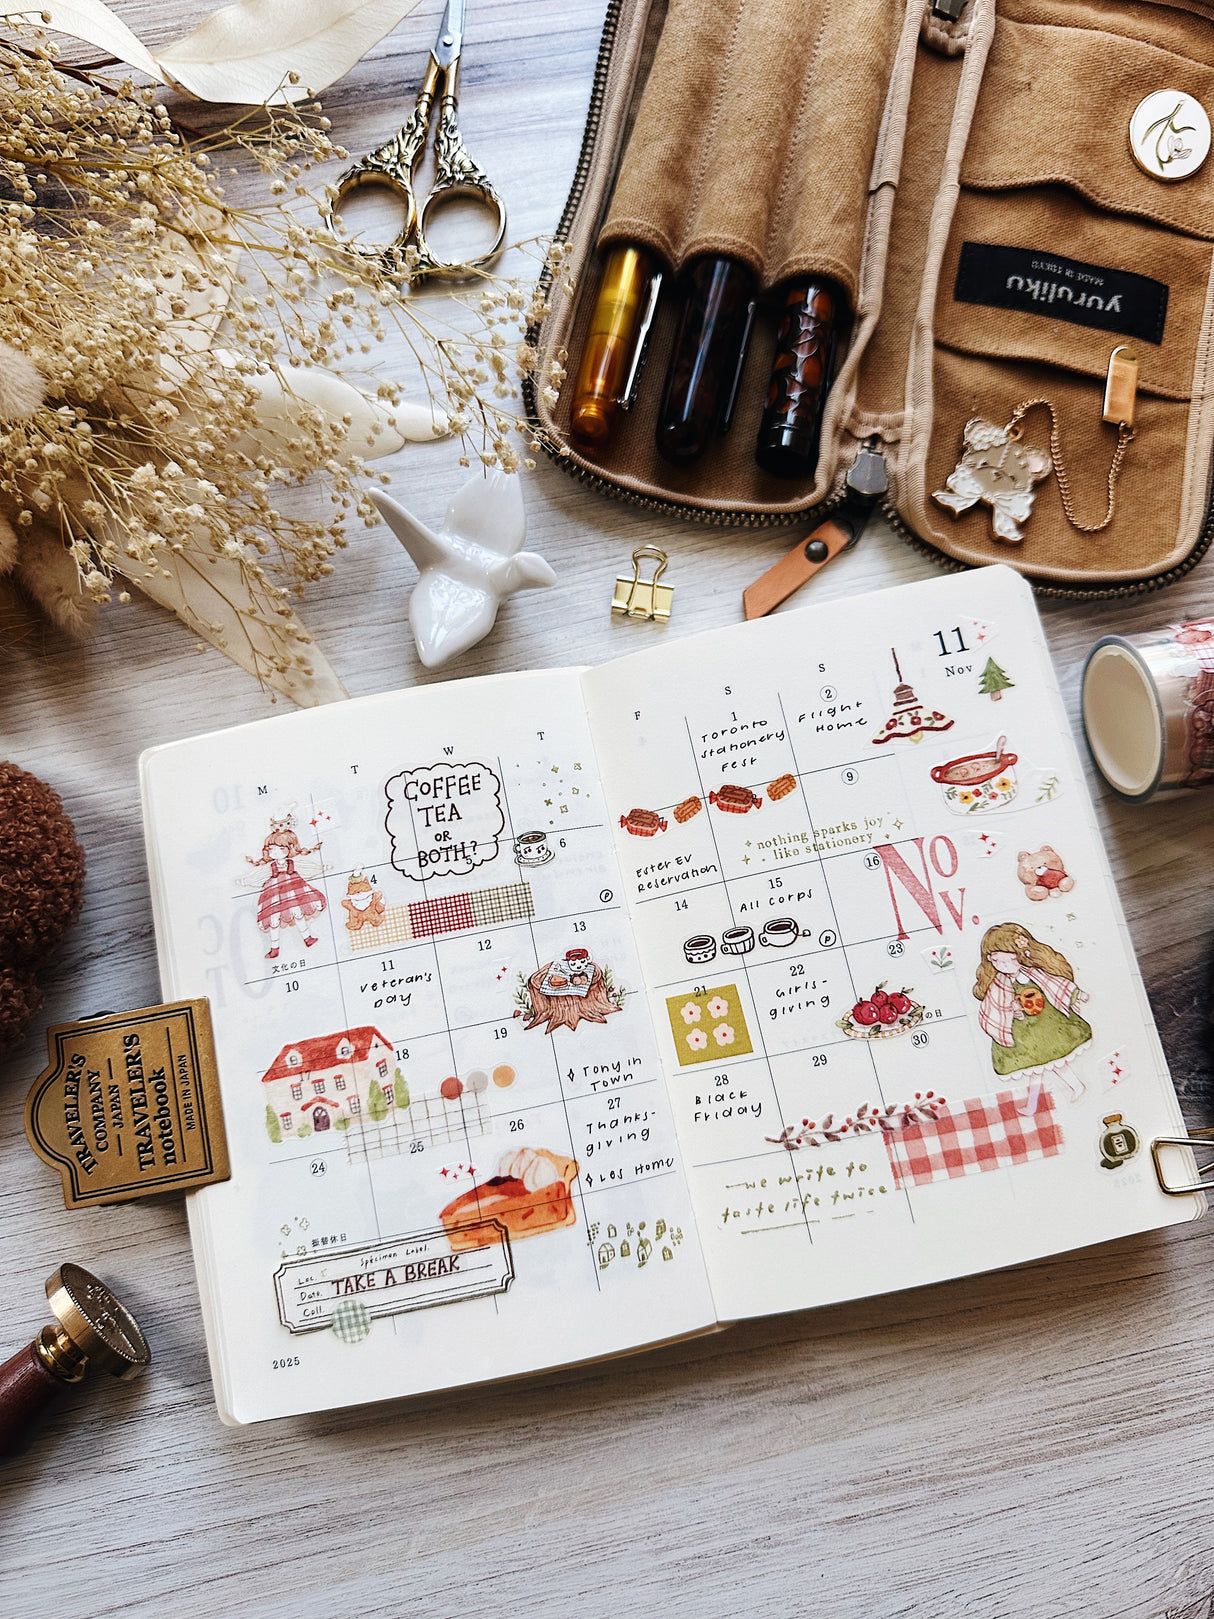 yuruliku
MADE IN TOKYO
11
Nov
M
T
W
T
F
S
S
COFFEE
TEA
OR
BOTH?
1
Toronto
Stationery
Fest
2
Flight
Home
4
5
6
9
nothing sparks joy
like stationery
Ester Ev
Reservation
P
文化の日
10
11
Veteran's
Day
12
13
14
15
All Corps
P
16
No
v.
18
19
Tony in
Town
21
22
Girls-
giving
23
の日
24
25
26
27
Thanks-
giving
Les Home
28
Black
Friday
29
30
we write to
taste life twice
振替休日
Specimen Label.
Loc.
Date.
Coll.
TAKE A BREAK
2025
TRAVELER'S
COMPANY
JAPAN
TRAVELER'S
notebook
MADE IN JAPAN